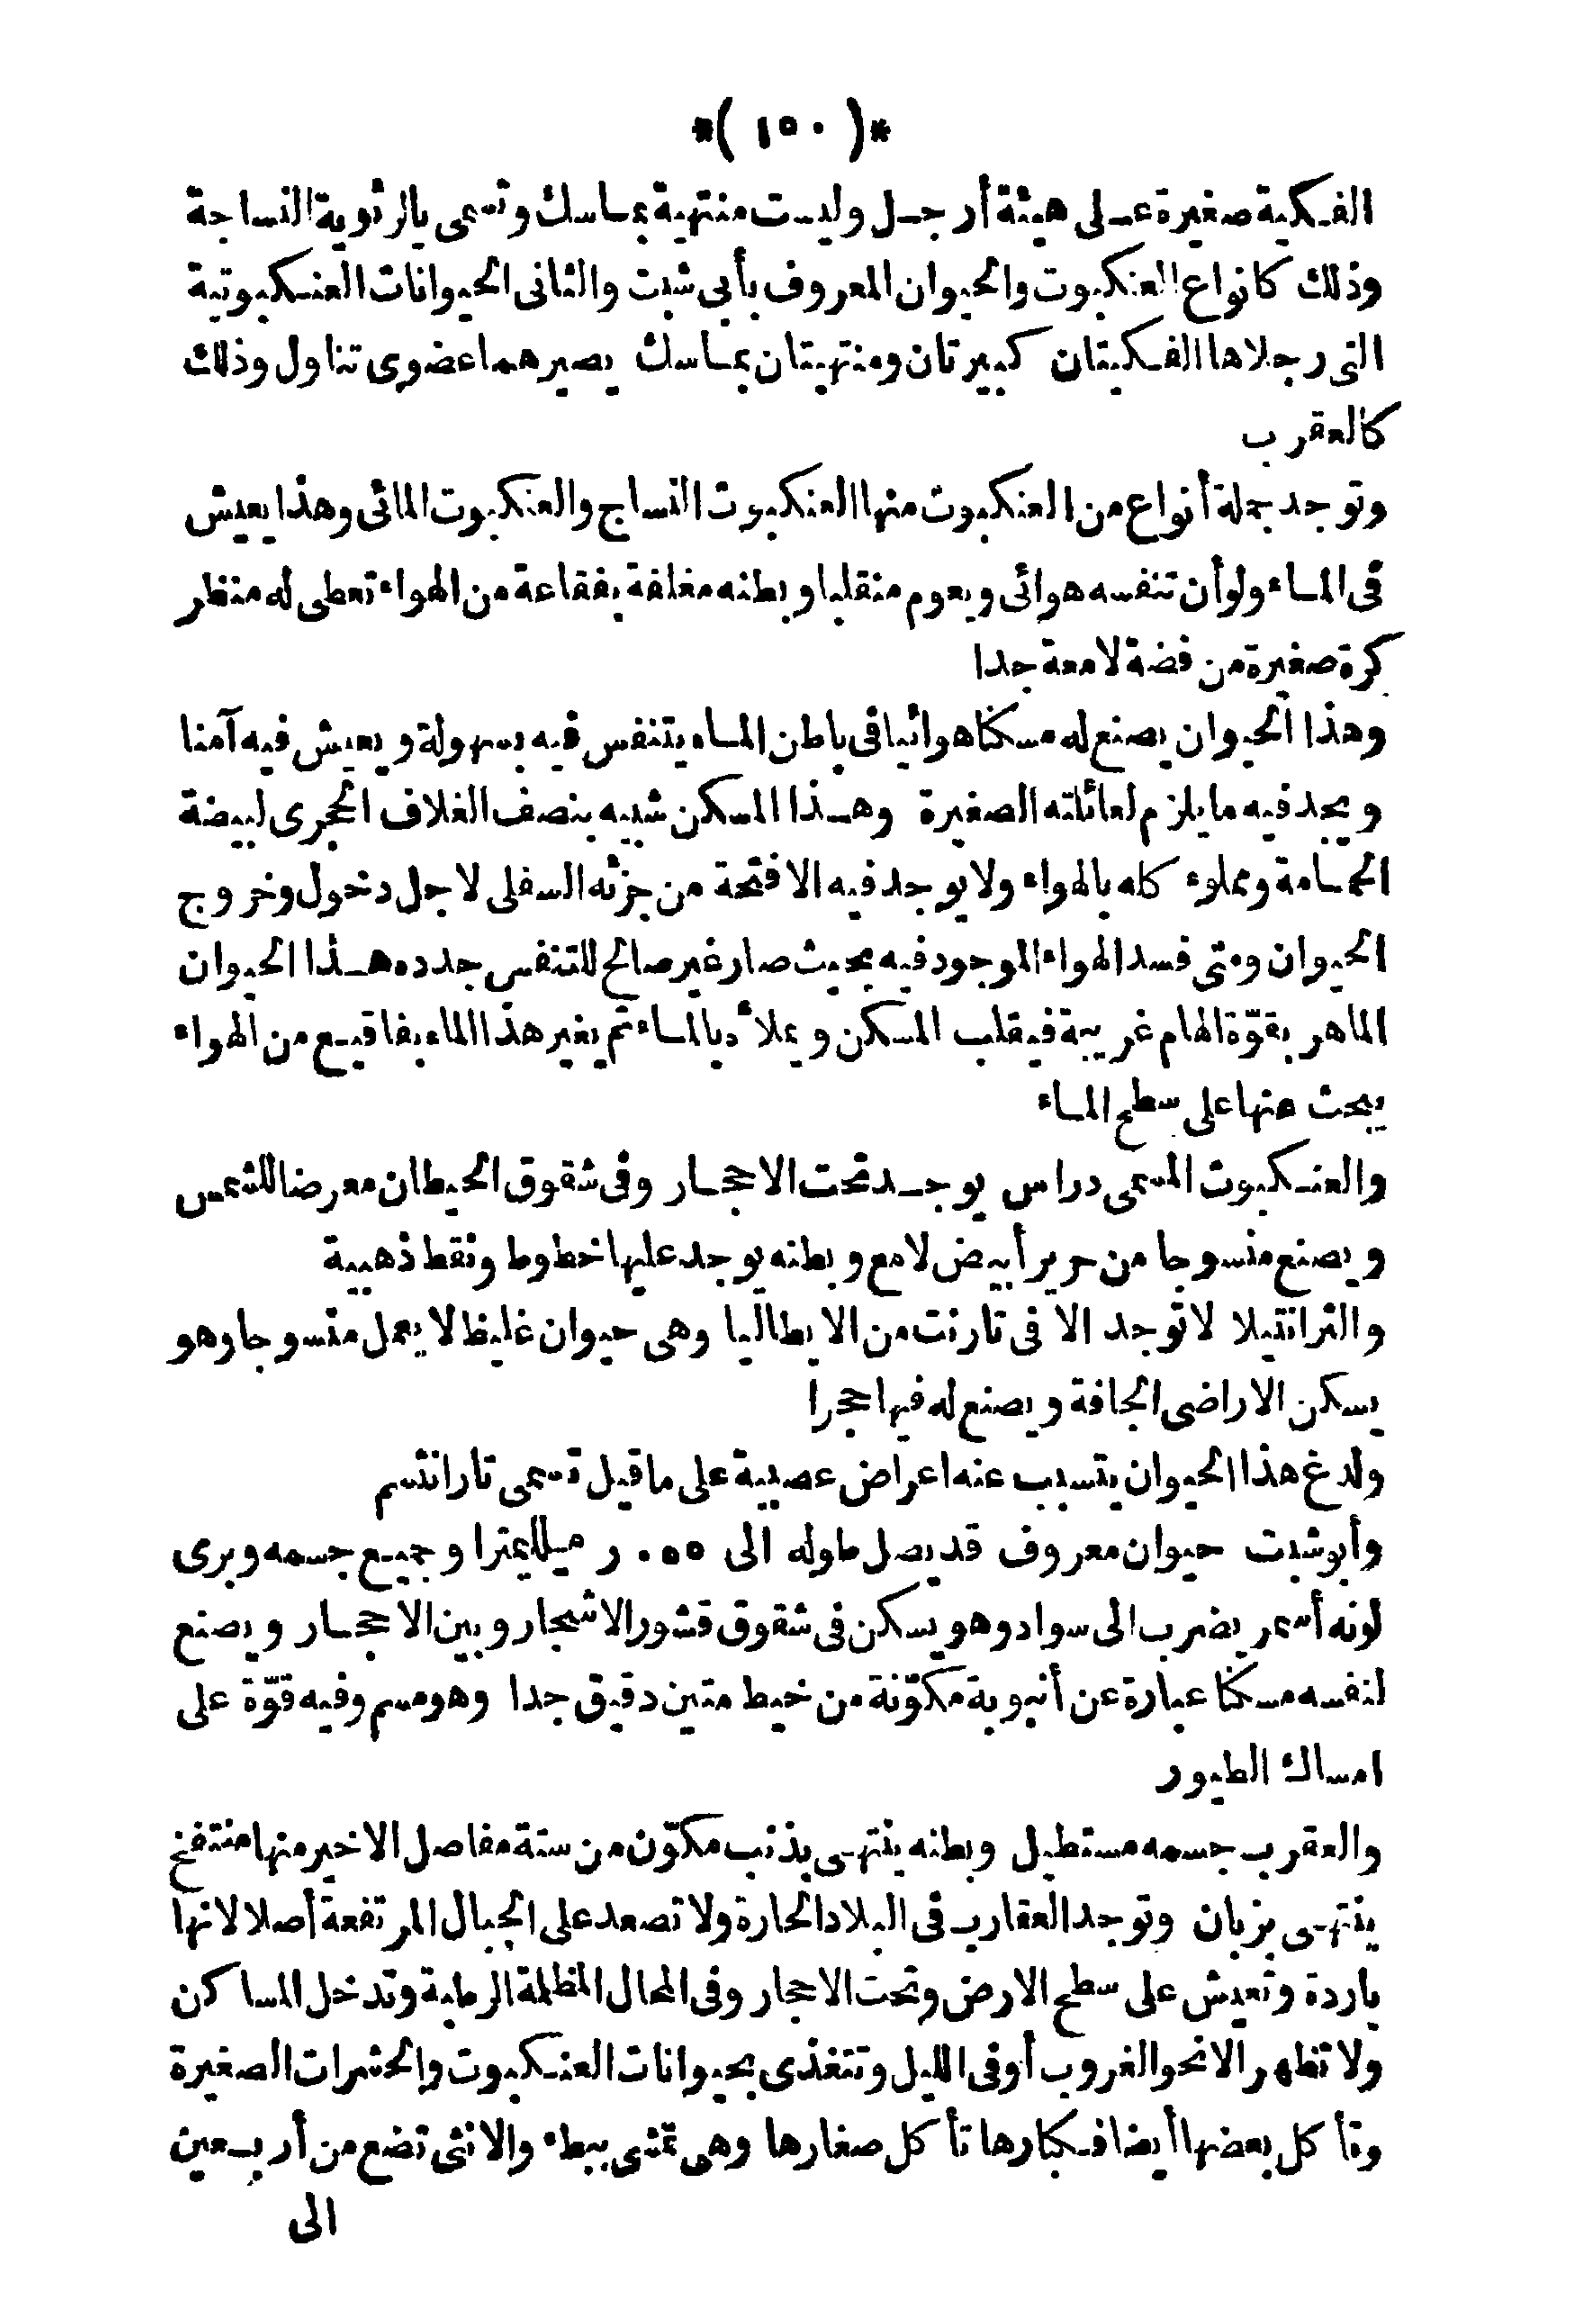 *( ١٥٠ )*
الفكية صغيرة على هيئة أرجل وليست منتهية بماسك وتسمى بالرئوية النساجة
وذلك كانواع العنكبوت والحيوان المعروف بأبى شبت والثانى الحيوانات العنكبوتية
التى رجلاها الفكيتان كبيرتان ومنتهيتان بماسك يصيرهما عضوى تناول وذلك
كالعقرب
وتوجد جملة أنواع من العنكبوت منها العنكبوت النساج والعنكبوت المائى وهذا يعيش
فى الماء ولو أن تنفسه هوائى ويعوم منقلبا وبطنه مغلفة بفقاعة من الهواء تعطى له منظر
كرة صغيرة من فضة لامعة جدا
وهذا الحيوان يصنع له مسكنا هوائيا فى باطن الماء يتنفس فيه بسهولة ويعيش فيه آمنا
ويجد فيه ما يلزم لعائلته الصغيرة وهذا المسكن شبيه بنصف الغلاف الحجرى لبيضة
الحمامة ومملوء كله بالهواء ولا يوجد فيه الا فتحة من جزئه السفلى لاجل دخول وخروج
الحيوان ومتى فسد الهواء الموجود فيه بحيث صار غير صالح للتنفس جدده هذا الحيوان
الماهر بقوّة الهام غريبة فيقلب المسكن ويملأه بالماء ثم يغير هذا الماء بفقاقيع من الهواء
يبحث عنها على سطح الماء
والعنكبوت المسمى دراس يوجد تحت الاحجار وفى شقوق الحيطان معرضا للشمس
ويصنع منسوجا من حرير أبيض لامع وبطنه يوجد عليها خطوط ونقط ذهبية
والترانتيلا لا توجد الا فى تارنت من الايطاليا وهى حيوان غليظ لا يعمل منسوجا وهو
يسكن الاراضى الجافة ويصنع له فيها حجرا
ولدغ هذا الحيوان يتسبب عنه اعراض عصبية على ما قيل تسمى تارانتسم
وأبو شبت حيوان معروف قد يصل طوله الى ٠٥٥ ر ميلليمترا وجميع جسمه وبرى
لونه أسمر يضرب الى سواد وهو يسكن فى شقوق قشور الاشجار وبين الاحجار ويصنع
لنفسه مسكنا عبارة عن أنبوبة مكوّنة من خيط متين دقيق جدا وهو مسم وفيه قوّة على
امساك الطيور
والعقرب جسمه مستطيل وبطنه ينتهى بذنب مكوّن من ستة مفاصل الاخير منها منتفخ
ينتهى بزبان وتوجد العقارب فى البلاد الحارة ولا تصعد على الجبال المرتفعة أصلا لانها
باردة وتعيش على سطح الارض وتحت الاحجار وفى المحال المظلمة الرطبة وتدخل المساكن
ولا تظهر الا نحو الغروب أو فى الليل وتتغذى بحيوانات العنكبوت والحشرات الصغيرة
وتأكل بعضها أيضا فكبارها تأكل صغارها وهى تمشى ببطء والانثى تضع من أربعين
الى